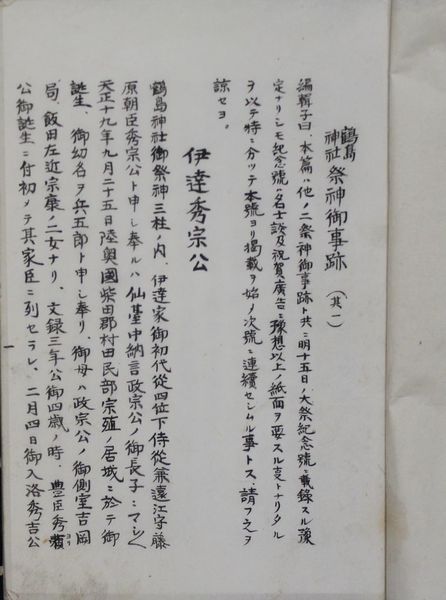 鶴島神社 祭神御事跡 (其一)
編輯子曰、本篇ハ他ノ二祭神御事跡ト共ニ明十五日ノ大祭紀念號ニ載錄スル豫
定ナリシモ紀念號ハ名士談及祝賀廣告ニ豫想以上ノ紙面ヲ要スル事トナリタル
ヲ以テ特ニ分ツテ本號ヨリ掲載ヲ始メ次號ニ連續セシムル事トス、請フ之ヲ
諒セヨ。
伊達秀宗公
鶴島神社御祭神三柱ノ内、伊達家御初代從四位下侍從兼遠江守藤
原朝臣秀宗公ト申シ奉ルハ仙臺中納言政宗公ノ御長子ニマシく
天正十九年九月二十五日陸奥國柴田郡村田民部宗殖ノ居城ニ於テ御
誕生、御幼名ヲ兵五郎ト申シ奉リ、御母ハ政宗公ノ御側室吉岡
局、飯田左近宗康ノ二女ナリ、文録三年公御四歳ノ時、豊臣秀頼
公御誕生ニ付初メテ其家臣ニ列セラレ、二月四日御入洛秀吉公